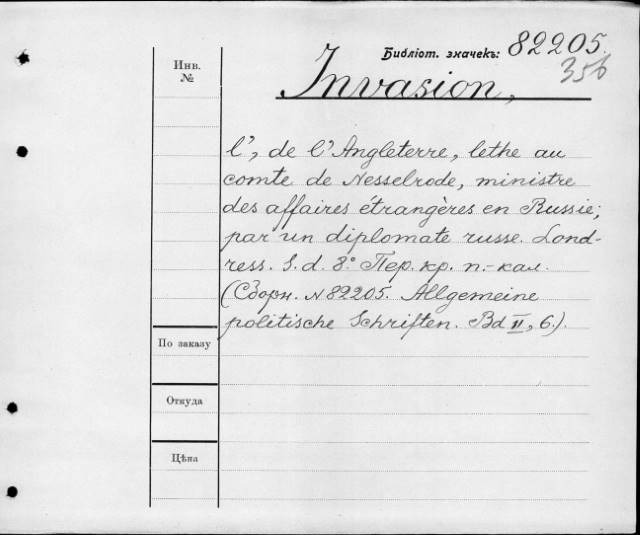 Библіот. значекъ: 82205.
356
Инв.
№
Invasion,
l', de l'Angleterre, lethe au
comte de Nesselrode, ministre
des affaires étrangères en Russie;
par un diplomate russe. Lond-
ress. S. d. 8° Пер. кр. п.-кал.
(Сборн. N 82205. Allgemeine
politische Schriften. Bd II, 6.).
По заказу
Откуда
Цѣна